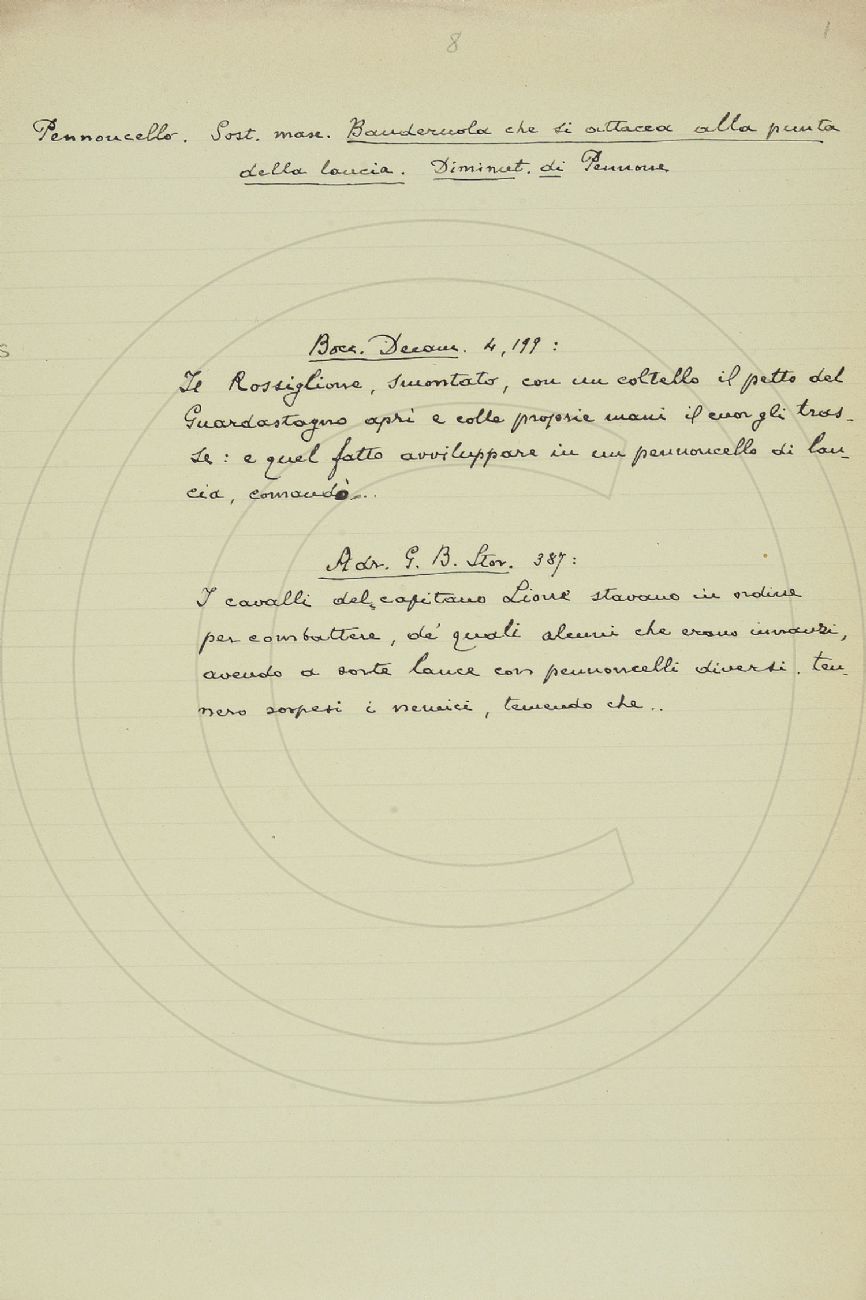 8
1
Pennoncello. Sost. masc. Banderuola che si attacca alla punta
della lancia. Diminut. di Pennone
Bocc. Decam. 4, 199 :
Il Rossiglione, smontato, con un coltello il petto del
Guardastagno aprì e colle proprie mani il cuor gli tras-
se : e quel fatto avviluppare in un pennoncello di lan-
cia, comandò...
Adr. G. B. Stor. 387:
I cavalli del capitano Lione stavano in ordine
per combattere, de' quali alcuni che erano innanzi,
avendo a sorte lance con pennoncelli diversi. ten-
nero sospesi i nemici, temendo che..